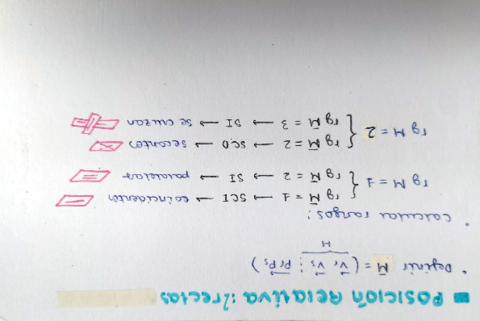 POSICIÓN RELATIVA: 2 rectas
• Definir M̄ = ( v⃗r v⃗s ⋮ PrPs )
M
• Calcular rangos:
rg M = 1 { rg M̄ = 1 → SCI → coincidentes
rg M̄ = 2 → SI → paralelas
rg M = 2 { rg M̄ = 2 → SCD → secantes
rg M̄ = 3 → SI → se cruzan